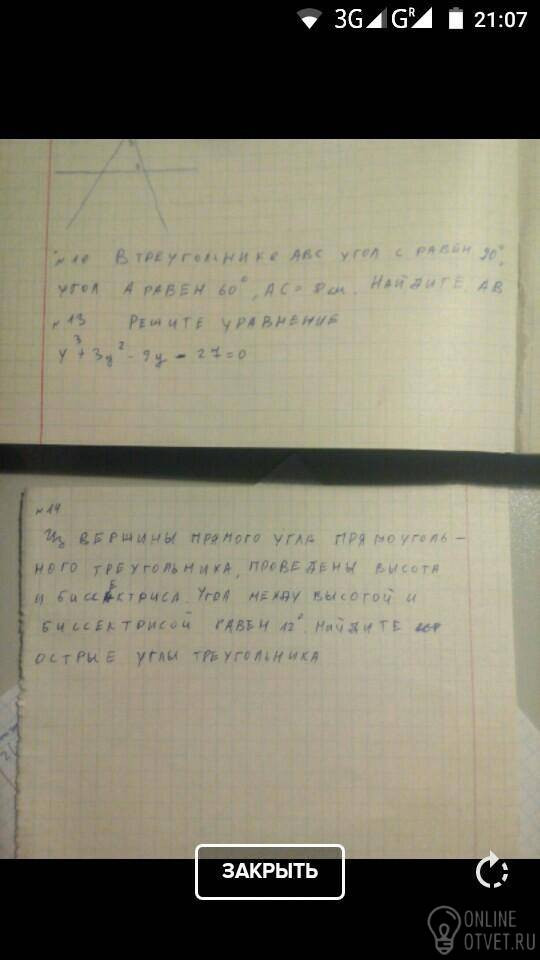 3G G R 21:07
N 10 В ТРЕУГОЛЬНИКЕ АВС УГОЛ С РАВЕН 90°,
УГОЛ А РАВЕН 60°, АС = 8 см. НАЙДИТЕ АВ
N 13 РЕШИТЕ УРАВНЕНИЕ
y³ + 3y² - 9y - 27 = 0
N 14
Из ВЕРШИНЫ ПРЯМОГО УГЛА ПРЯМОУГОЛЬ-
НОГО ТРЕУГОЛЬНИКА, ПРОВЕДЕНЫ ВЫСОТА
И БИССЕКТРИСА. УГОЛ МЕЖДУ ВЫСОТОЙ И
БИССЕКТРИСОЙ РАВЕН 12°. НАЙДИТЕ
ОСТРЫЕ УГЛЫ ТРЕУГОЛЬНИКА
ЗАКРЫТЬ
ONLINE
OTVET.RU